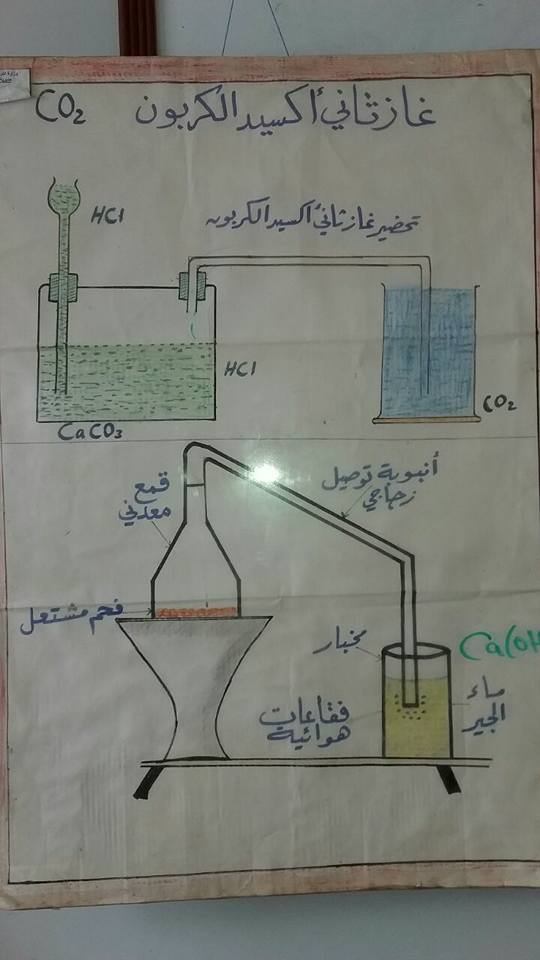 غاز ثاني أكسيد الكربون CO₂
HCl
تحضير غاز ثاني أكسيد الكربون
HCl
CO₂
CaCO₃
قمع
معدني
أنبوبة توصيل
زجاجي
فحم مشتعل
مخبار
Ca(OH
ماء
الجير
فقاعات
هوائية